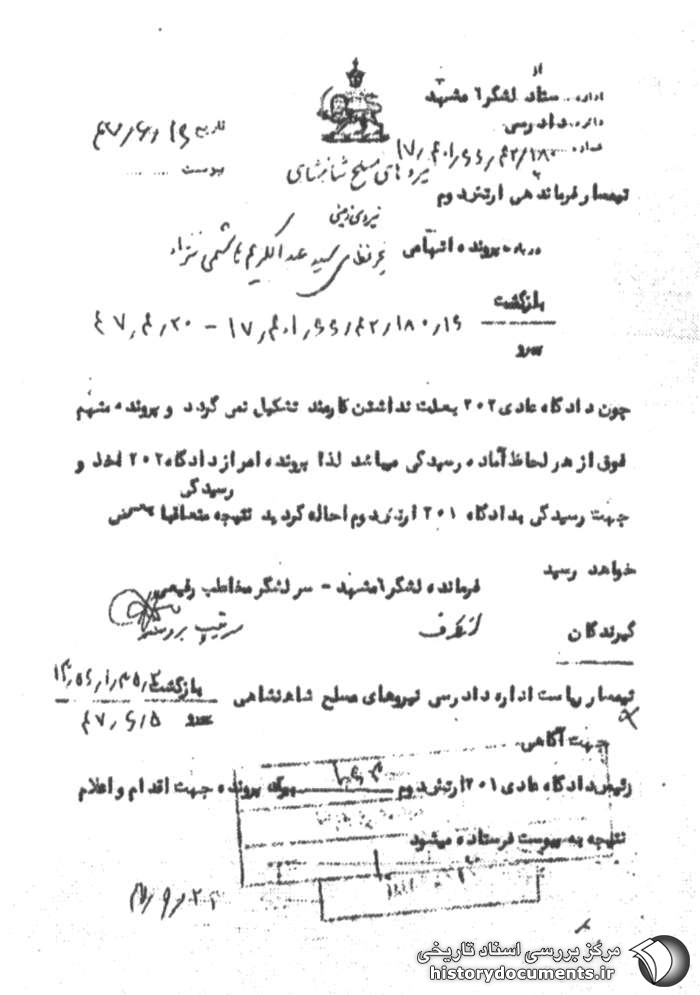 از
اداره... ستاد لشگر ۶ مشهد
دائره. دادرسی
شماره
تاریخ ۴۷/۶/۱۶
پیوست ......
نیروهای مسلح شاهنشاهی
تیمسار فرماندهی ارتش دوم
نیروی زمینی
درباره پرونده اتهامی غیرنظامی سید عبدالکریم هاشمی نژاد
بازگشت
پیرو
چون دادگاه عادی ۲۰۲ بعلت نداشتن کارمند تشکیل نمی گردد و پرونده متهم
فوق از هر لحاظ آماده رسیدگی میباشد لذا پرونده امر از دادگاه ۲۰۲ اخذ و
رسیدگی
جهت رسیدگی بدادگاه ۲۰۱ ارتش دوم احاله گردید نتیجه متعاقبا بعرض
خواهد رسید
فرمانده لشگر ۶ مشهد - سرلشگر مخاطب رفیعی
از طرف
گیرندگان
تیمسار ریاست اداره دادرسی نیروهای مسلح شاهنشاهی بازگشت
پیرو ۴۷/۶/۵
جهت آگاهی
رئیس دادگاه عادی ۲۰۱ ارتش دوم پرونده جهت اقدام و اعلام
نتیجه به پیوست فرستاده میشود
مرکز بررسی اسناد تاریخی
historydocuments.ir